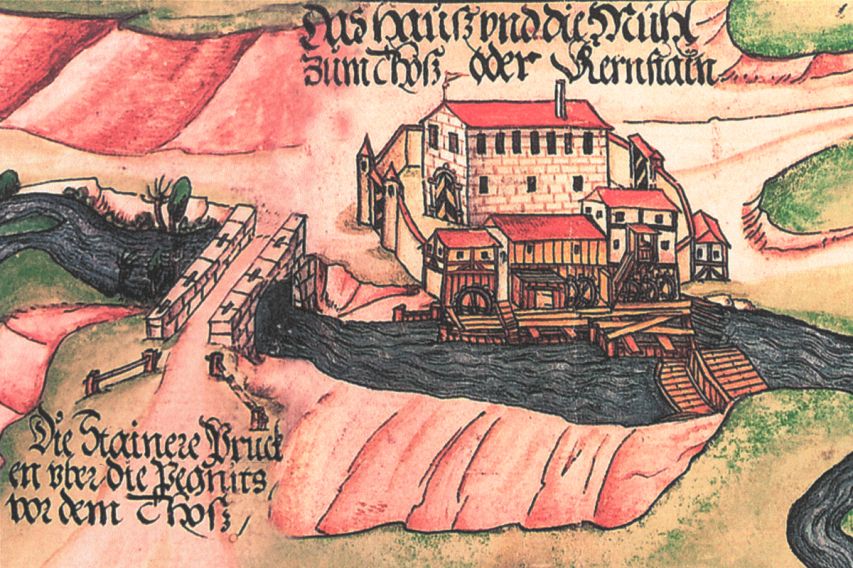 Das hauß vnd die Mühl
zum Thoß oder Kernstain
Die Stainere Bruck
en vber die Pegnits
vor dem Thoß /